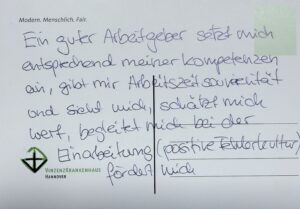 Modern. Menschlich. Fair.
Ein guter Arbeitgeber setzt mich
entsprechend meiner Kompetenzen
ein, gibt mir Arbeitszeitsouveränität
und sieht mich, schätzt mich
wert, begleitet mich bei der
Einarbeitung (positive Fehlerkultur)
fördert mich
VINZENZKRANKENHAUS
HANNOVER